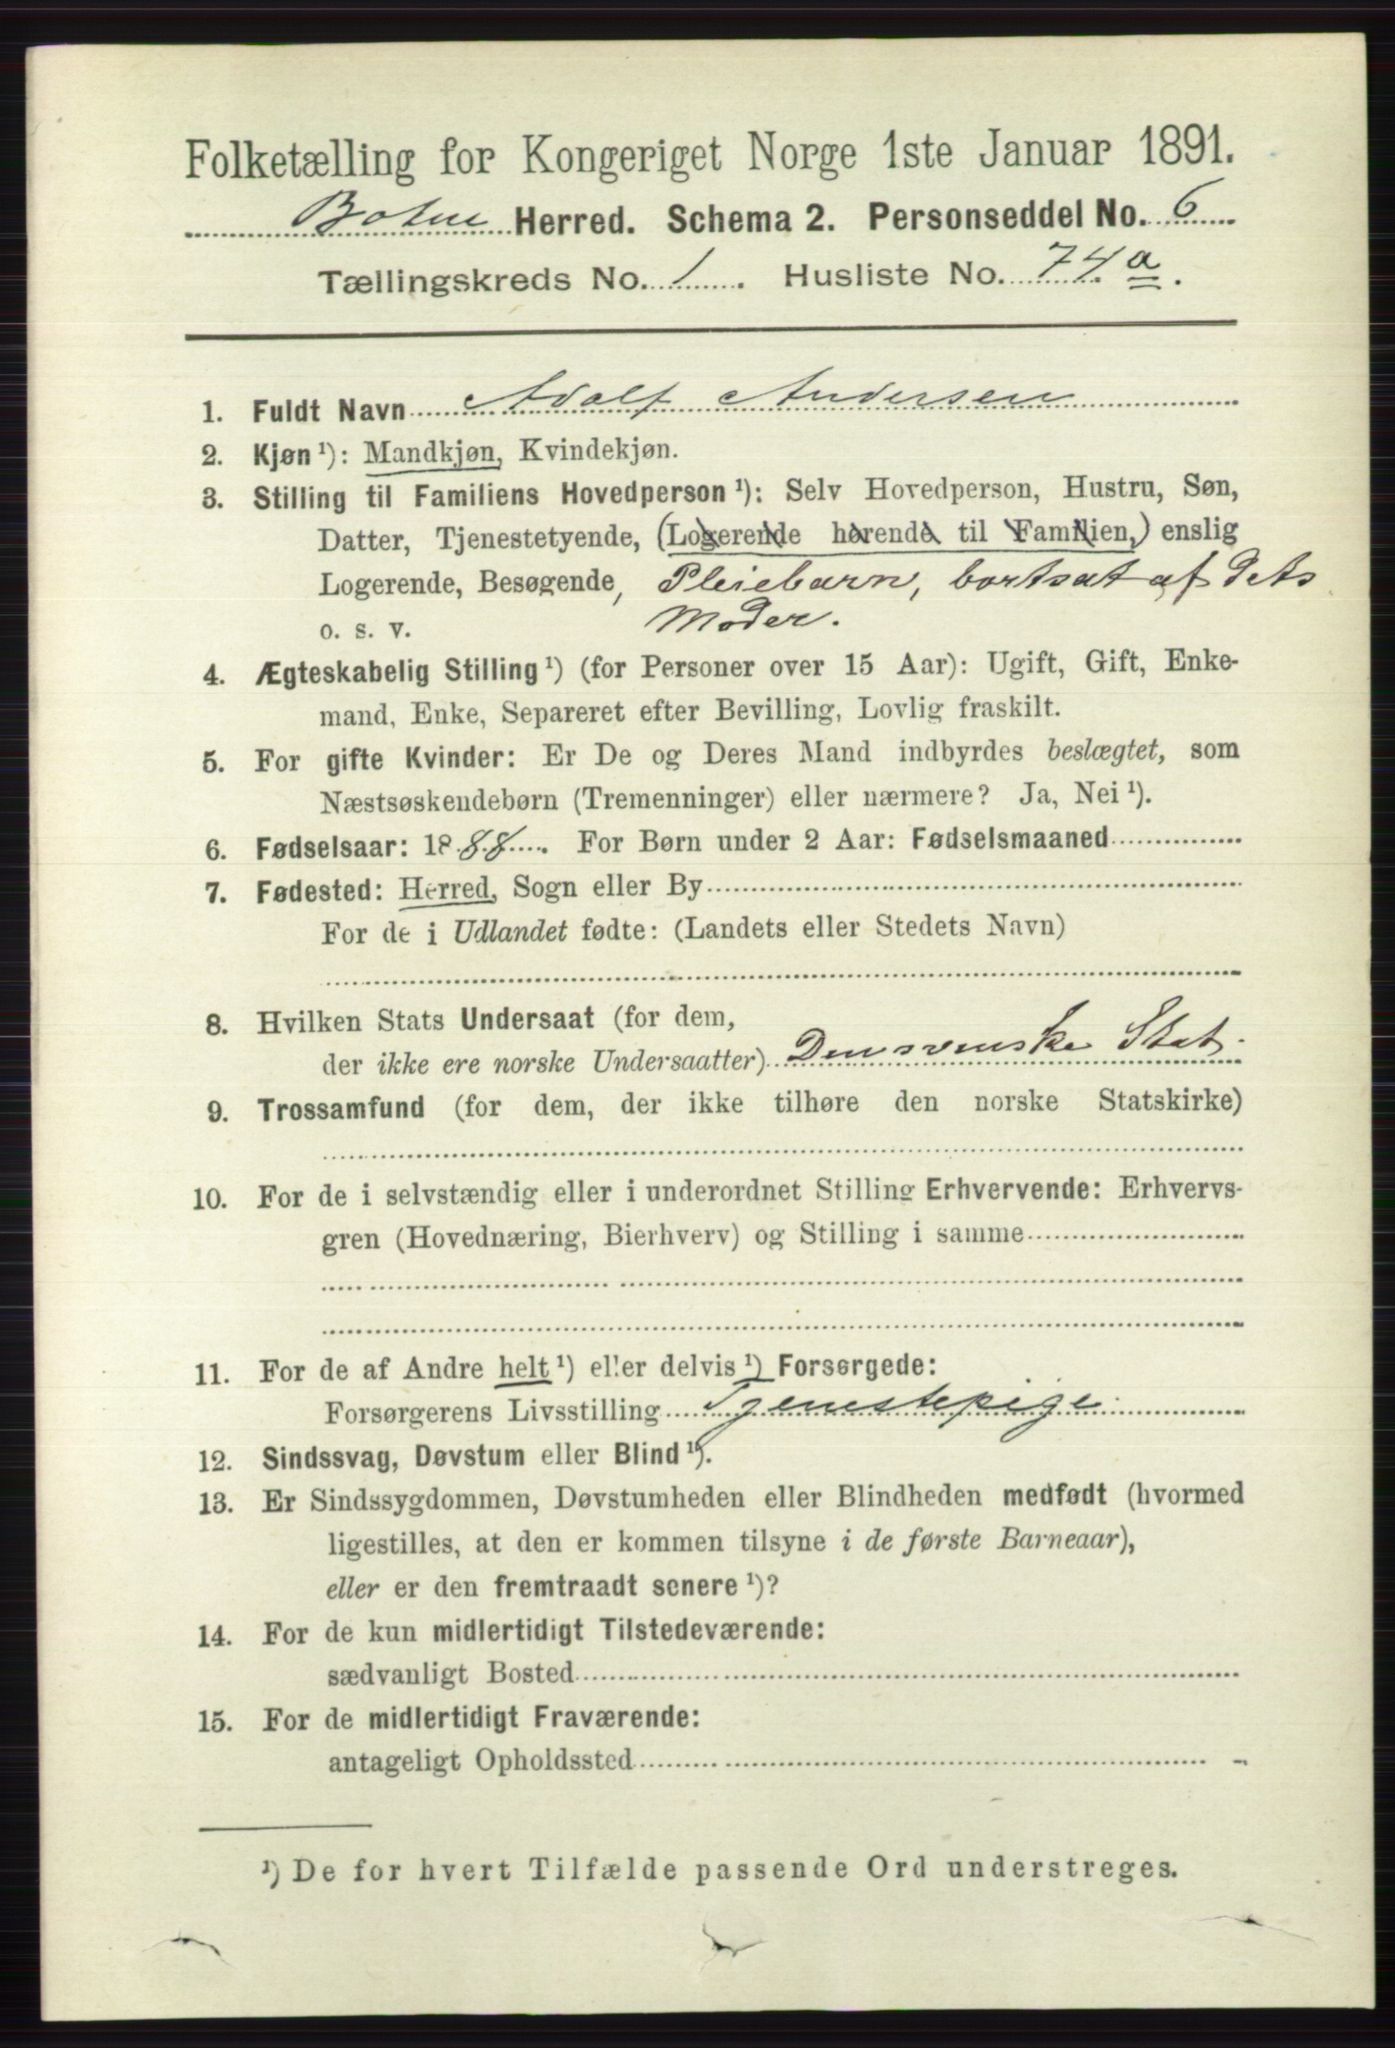 Folketælling for Kongeriget Norge 1ste Januar 1891.
Botne Herred. Schema 2. Personseddel No. 6
Tællingskreds No. 1. Husliste No. 74.a.
1. Fuldt Navn Adolf Andersen
2. Kjøn¹): Mandkjøn, Kvindekjøn.
3. Stilling til Familiens Hovedperson¹): Selv Hovedperson, Hustru, Søn,
Datter, Tjenestetyende, (Logerende hørende til Familien,) enslig
Logerende, Besøgende, Pleiebarn, bortsat af dets
o. s. v. Moder.
4. Ægteskabelig Stilling¹) (for Personer over 15 Aar): Ugift, Gift, Enke-
mand, Enke, Separeret efter Bevilling, Lovlig fraskilt.
5. For gifte Kvinder: Er De og Deres Mand indbyrdes beslægtet, som
Næstsøskendebørn (Tremenninger) eller nærmere? Ja, Nei¹).
6. Fødselsaar: 1888. For Børn under 2 Aar: Fødselsmaaned
7. Fødested: Herred, Sogn eller By
For de i Udlandet fødte: (Landets eller Stedets Navn)
8. Hvilken Stats Undersaat (for dem,
der ikke ere norske Undersaatter) Den svenske Stat.
9. Trossamfund (for dem, der ikke tilhøre den norske Statskirke)
10. For de i selvstændig eller i underordnet Stilling Erhvervende: Erhvervs-
gren (Hovednæring, Bierhverv) og Stilling i samme
11. For de af Andre helt¹) eller delvis¹) Forsørgede:
Forsørgerens Livsstilling Tjenestepige
12. Sindssvag, Døvstum eller Blind¹).
13. Er Sindssygdommen, Døvstumheden eller Blindheden medfødt (hvormed
ligestilles, at den er kommen tilsyne i de første Barneaar),
eller er den fremtraadt senere¹)?
14. For de kun midlertidigt Tilstedeværende:
sædvanligt Bosted
15. For de midlertidigt Fraværende:
antageligt Opholdssted
¹) De for hvert Tilfælde passende Ord understreges.